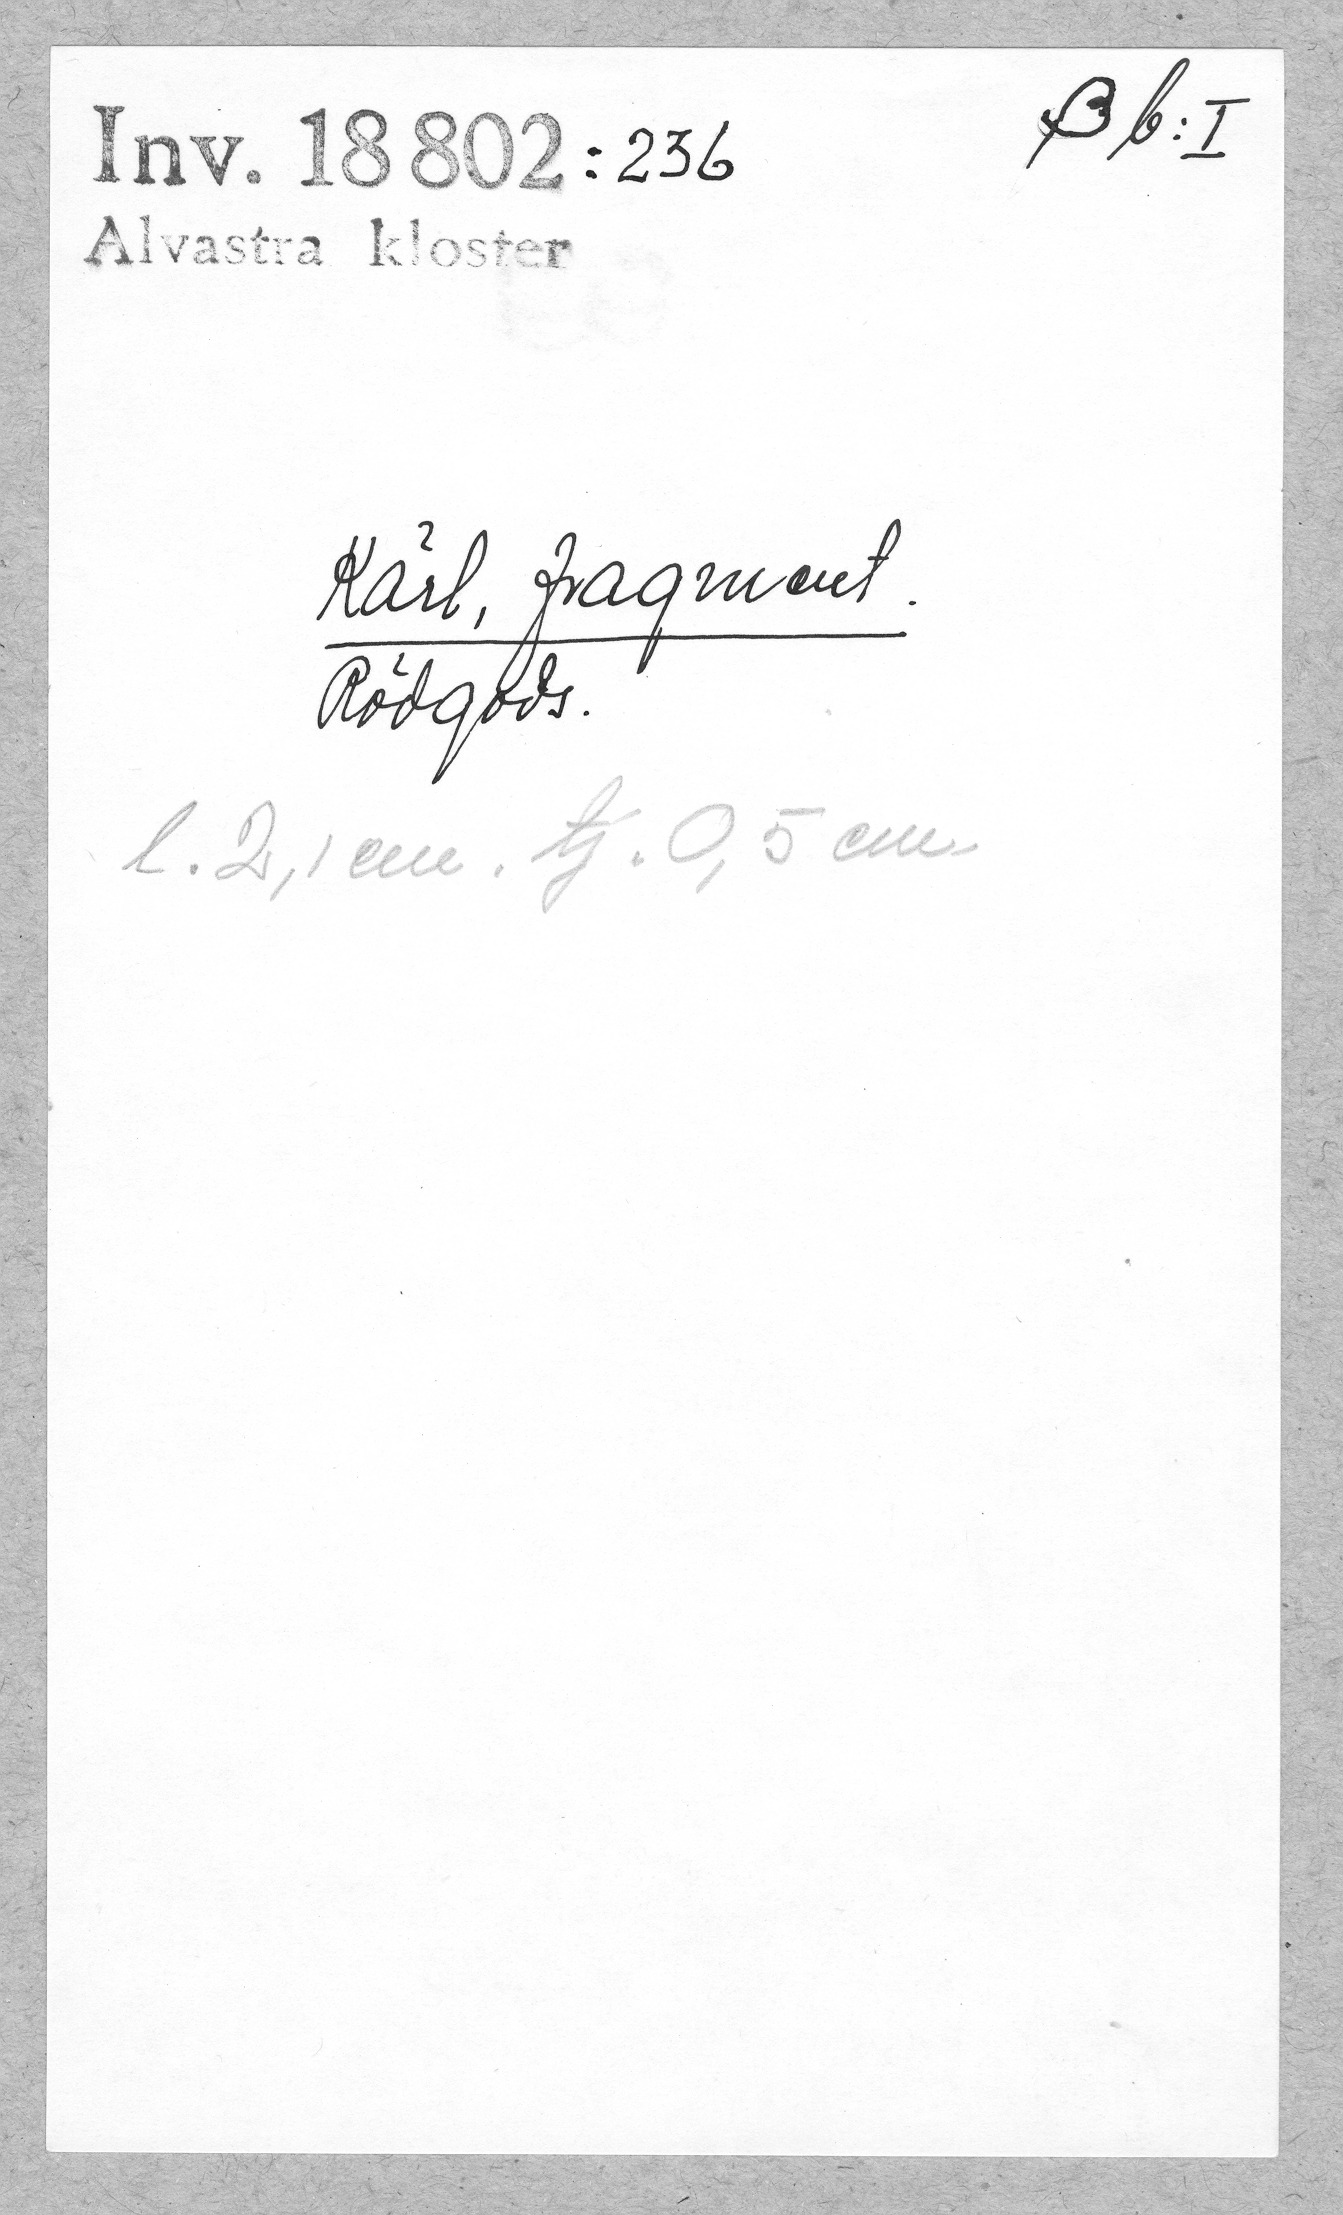 Inv. 18 802 : 236
B b: I
Alvastra kloster
Kärl, fragment.
Rödgods.
l. 2,1 cm. tj. 0,5 cm